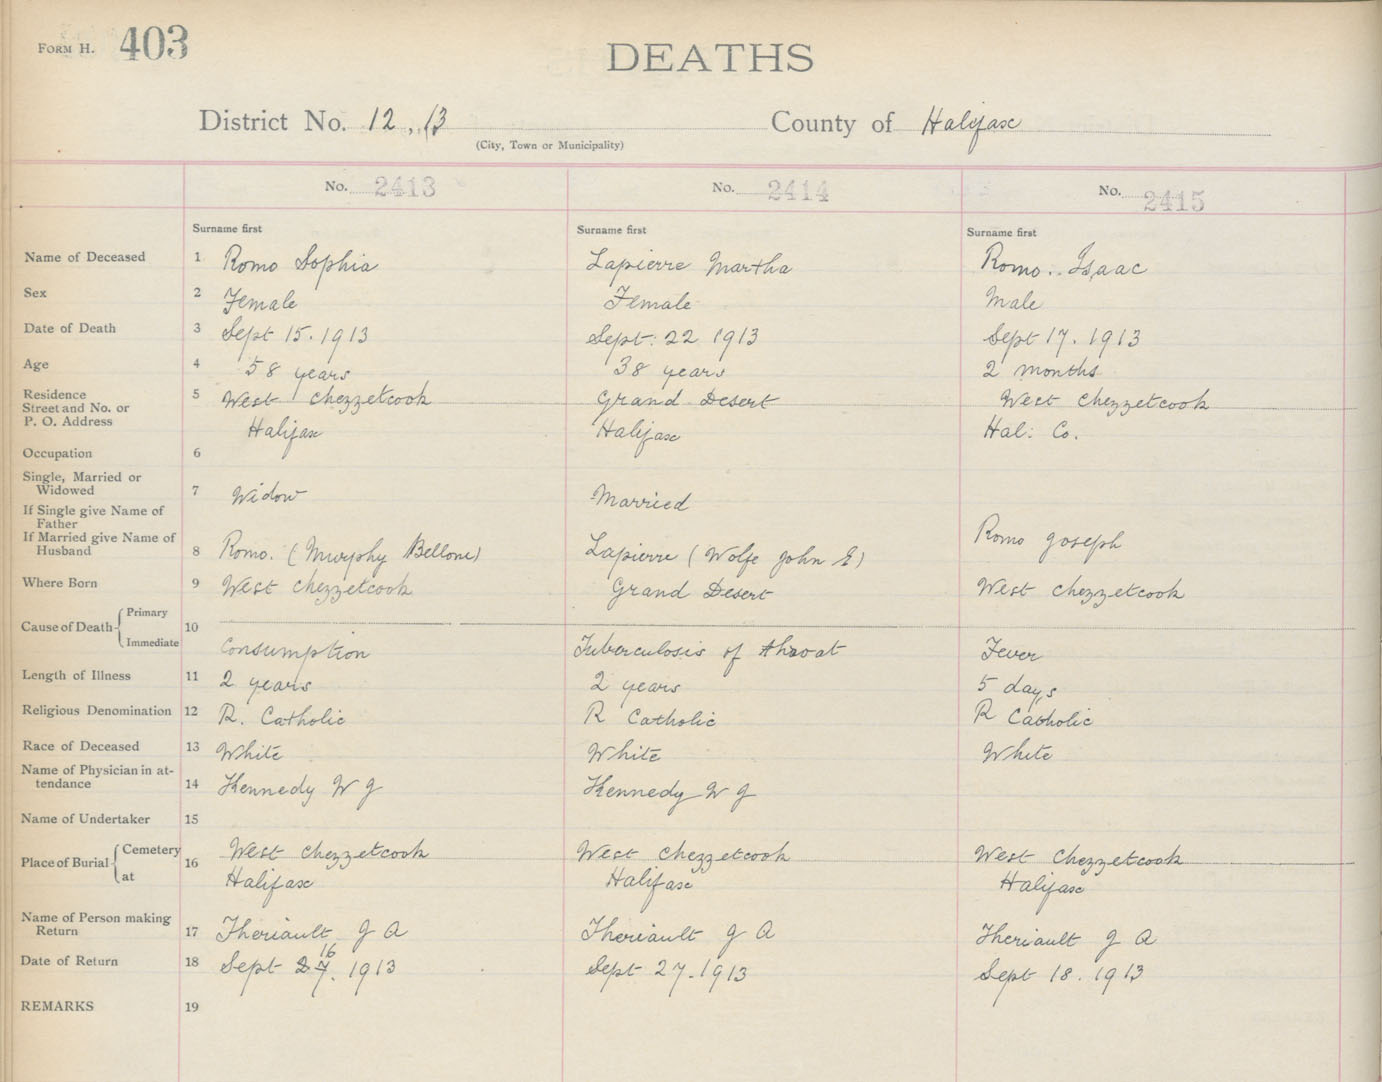 FORM H. 403
DEATHS
District No. 12, 13 County of Halifax
(City, Town or Municipality)
No. 2413 No. 2414 No. 2415
Surname first Surname first Surname first
Name of Deceased 1 Romo Sophia Lapierre Martha Romo.. Isaac
Sex 2 Female Female Male
Date of Death 3 Sept 15. 1913 Sept: 22 1913 Sept 17. 1913
Age 4 58 years 38 years 2 months
Residence 5 West Chezzetcook Grand Desert West Chezzetcook
Street and No. or
P. O. Address Halifax Halifax Hal: Co.
Occupation 6
Single, Married or
Widowed 7 Widow Married
If Single give Name of
Father
If Married give Name of Romo Joseph
Husband 8 Romo. (Murphy Bellone) Lapierre (Wolfe John E)
Where Born 9 West Chezzetcook Grand Desert West Chezzetcook
Primary
Cause of Death 10
Immediate Consumption Tuberculosis of throat Fever
Length of Illness 11 2 years 2 years 5 days
Religious Denomination 12 R. Catholic R Catholic R Catholic
Race of Deceased 13 White White White
Name of Physician in at-
tendance 14 Kennedy W J Kennedy W J
Name of Undertaker 15
Cemetery West Chezzetcook West Chezzetcook West Chezzetcook
Place of Burial 16
at Halifax Halifax Halifax
Name of Person making
Return 17 Theriault J A Theriault J A Theriault J A
16
Date of Return 18 Sept 27. 1913 Sept 27. 1913 Sept 18. 1913
REMARKS 19